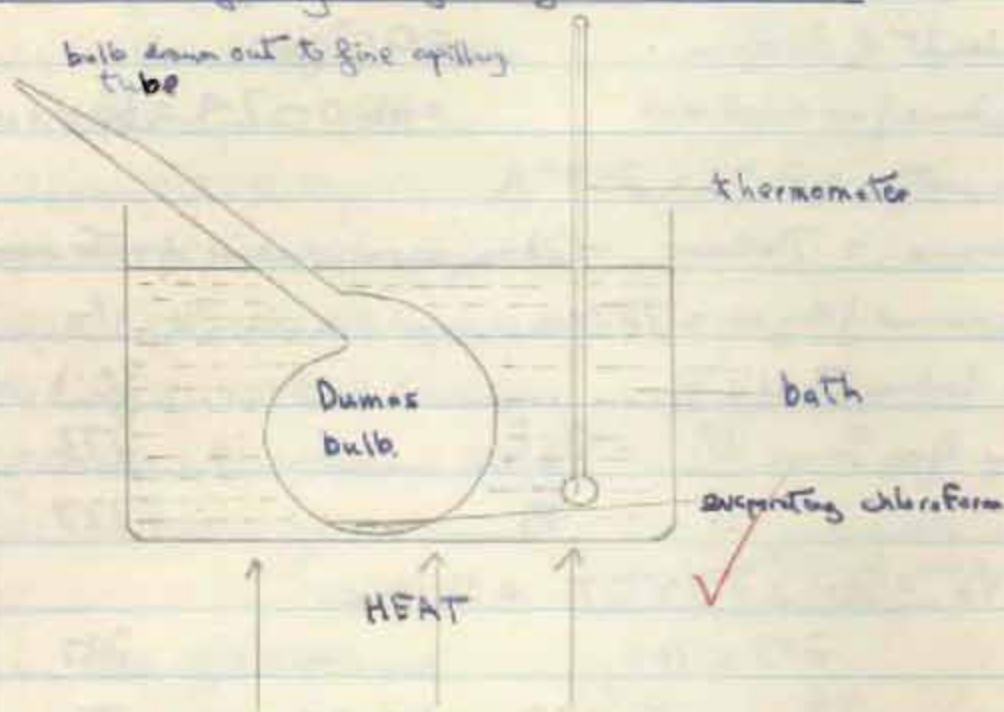 bulb drawn out to fine capillary
tube
thermometer
Dumas
bulb.
bath
evaporating chloroform
HEAT